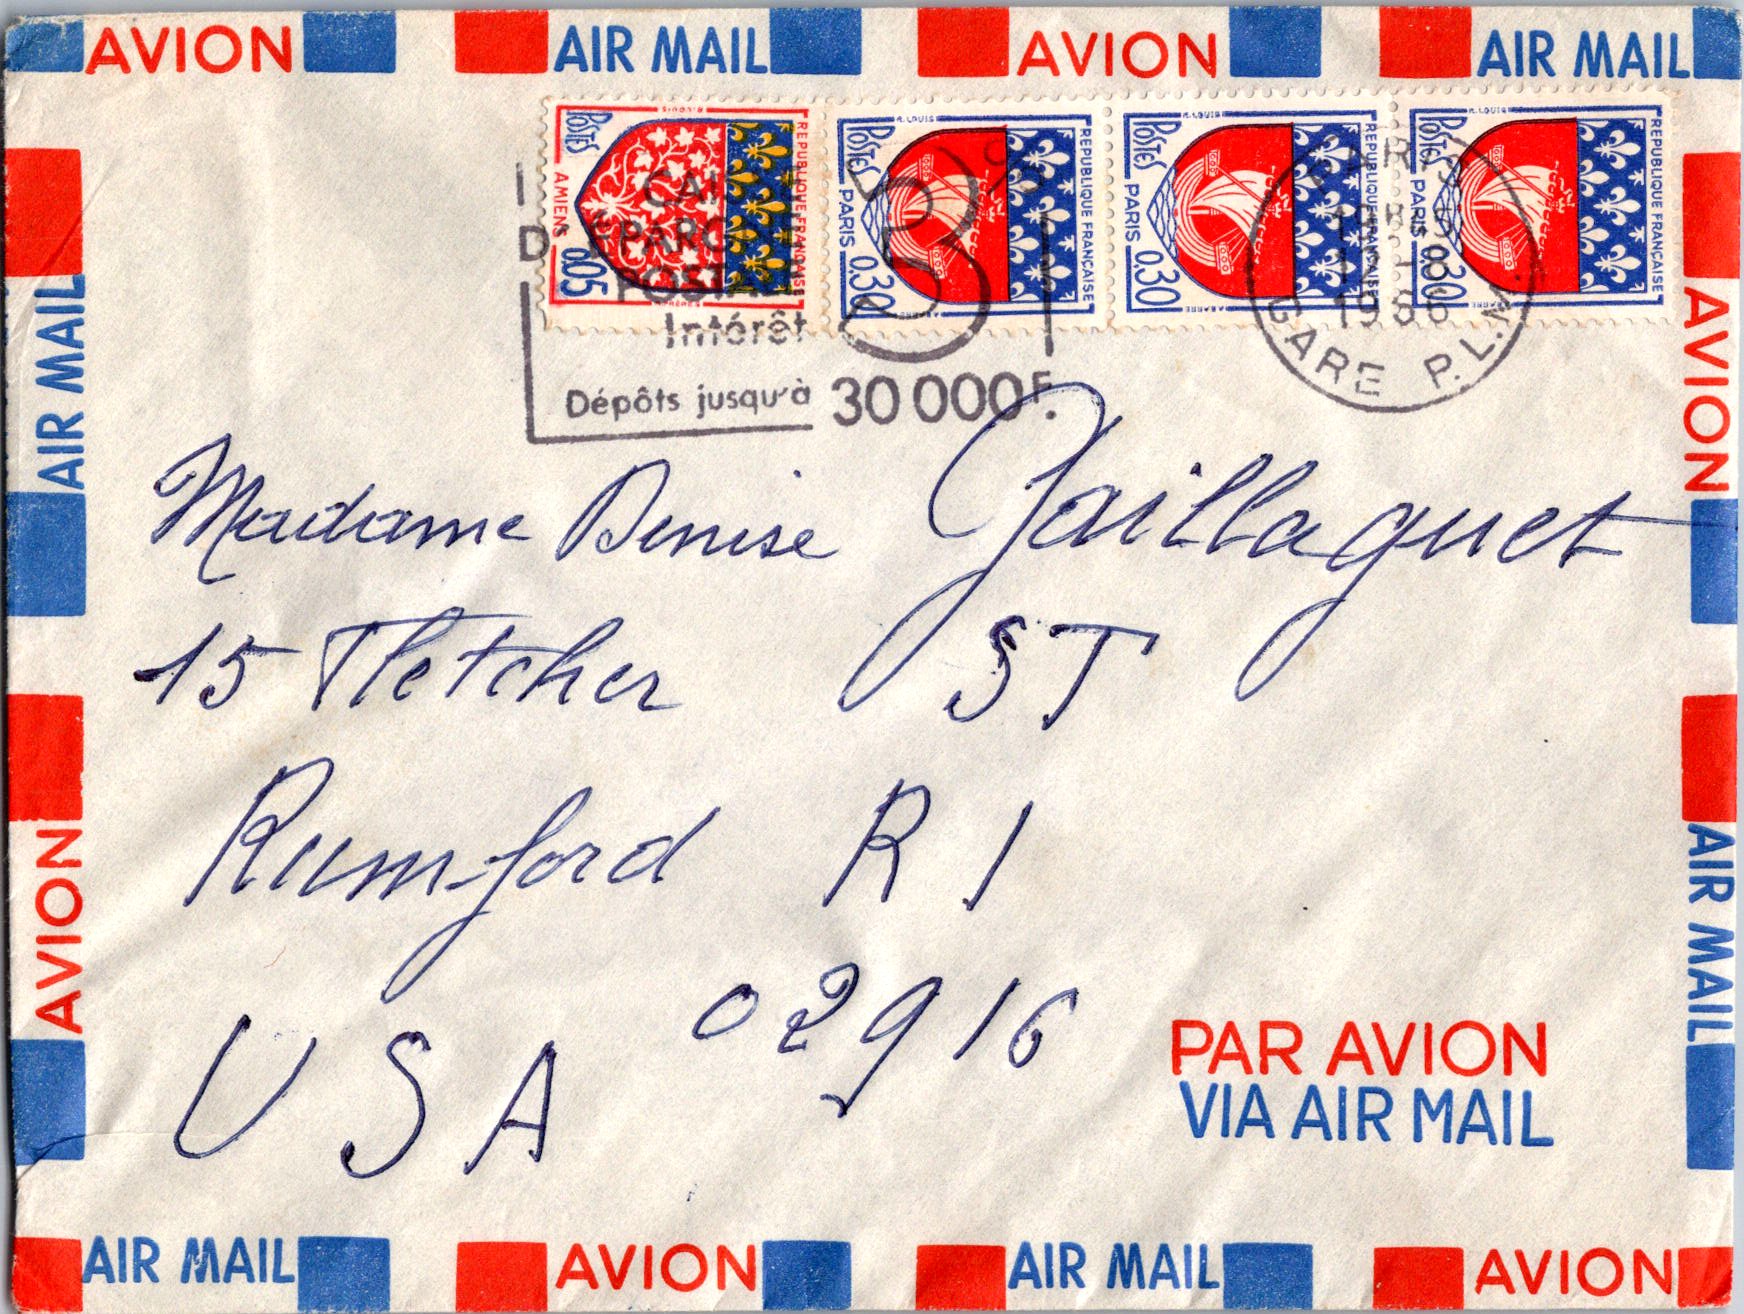 AVION AIR MAIL AVION AIR MAIL
POSTES AMIENS 0,05 REPUBLIQUE FRANÇAISE
R. LOUIS POSTES PARIS 0.30 REPUBLIQUE FRANÇAISE
R. LOUIS POSTES PARIS 0.30 REPUBLIQUE FRANÇAISE
R. LOUIS POSTES PARIS 0.30 REPUBLIQUE FRANÇAISE
POSTALE
Intérêt
Dépôts jusqu'à 30 000 F.
GARE P.L.M.
Madame Denise Gaillaguet
15 Fletcher ST
Rumford R I
02916
U S A
PAR AVION
VIA AIR MAIL
AIR MAIL
AVION
AVION
AIR MAIL
AIR MAIL AVION AIR MAIL AVION